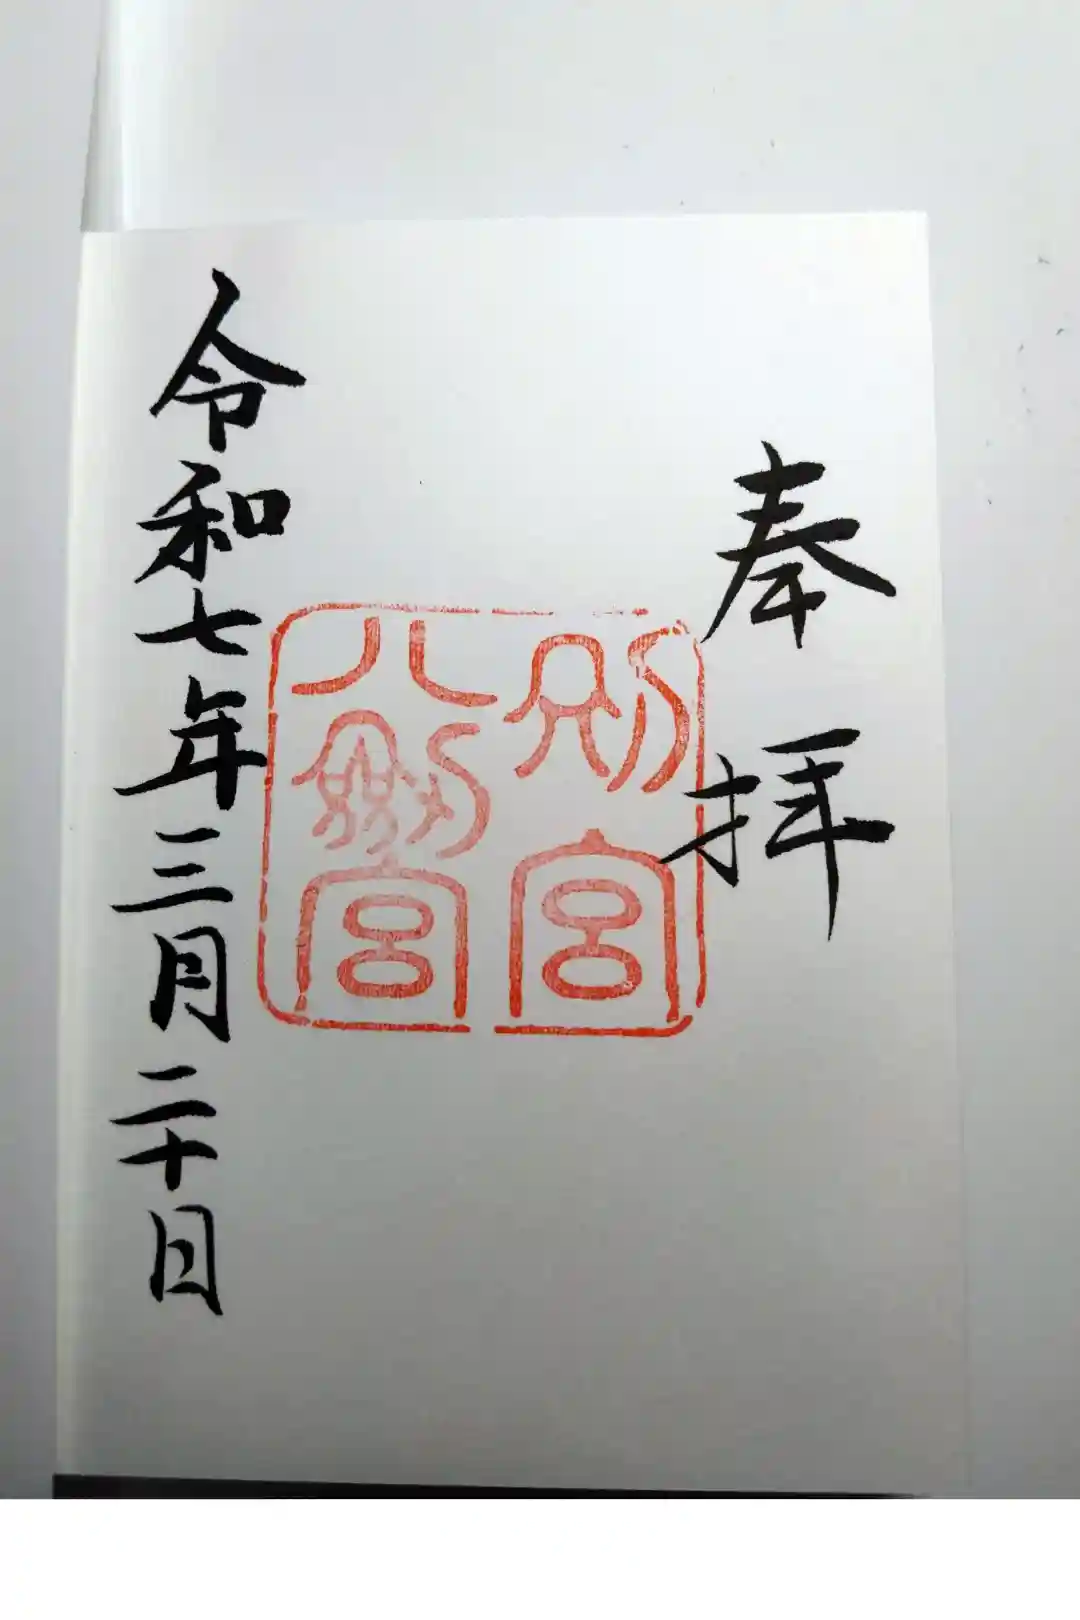 奉拝
別宮
八劔宮
令和七年三月二十日